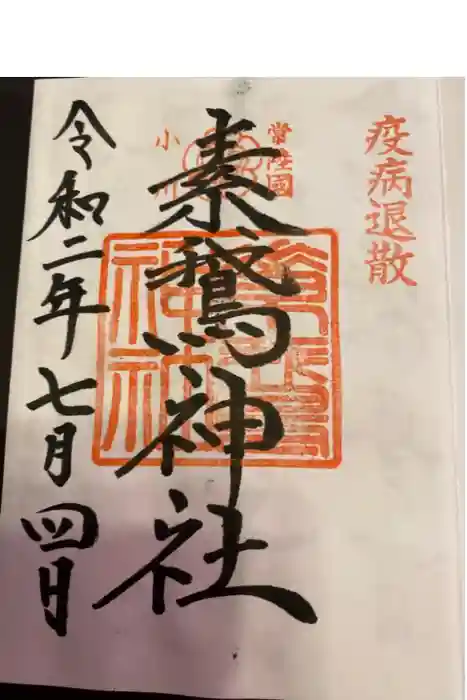 疫病退散
常陸國
小川
素鵞神社
令和二年七月四日